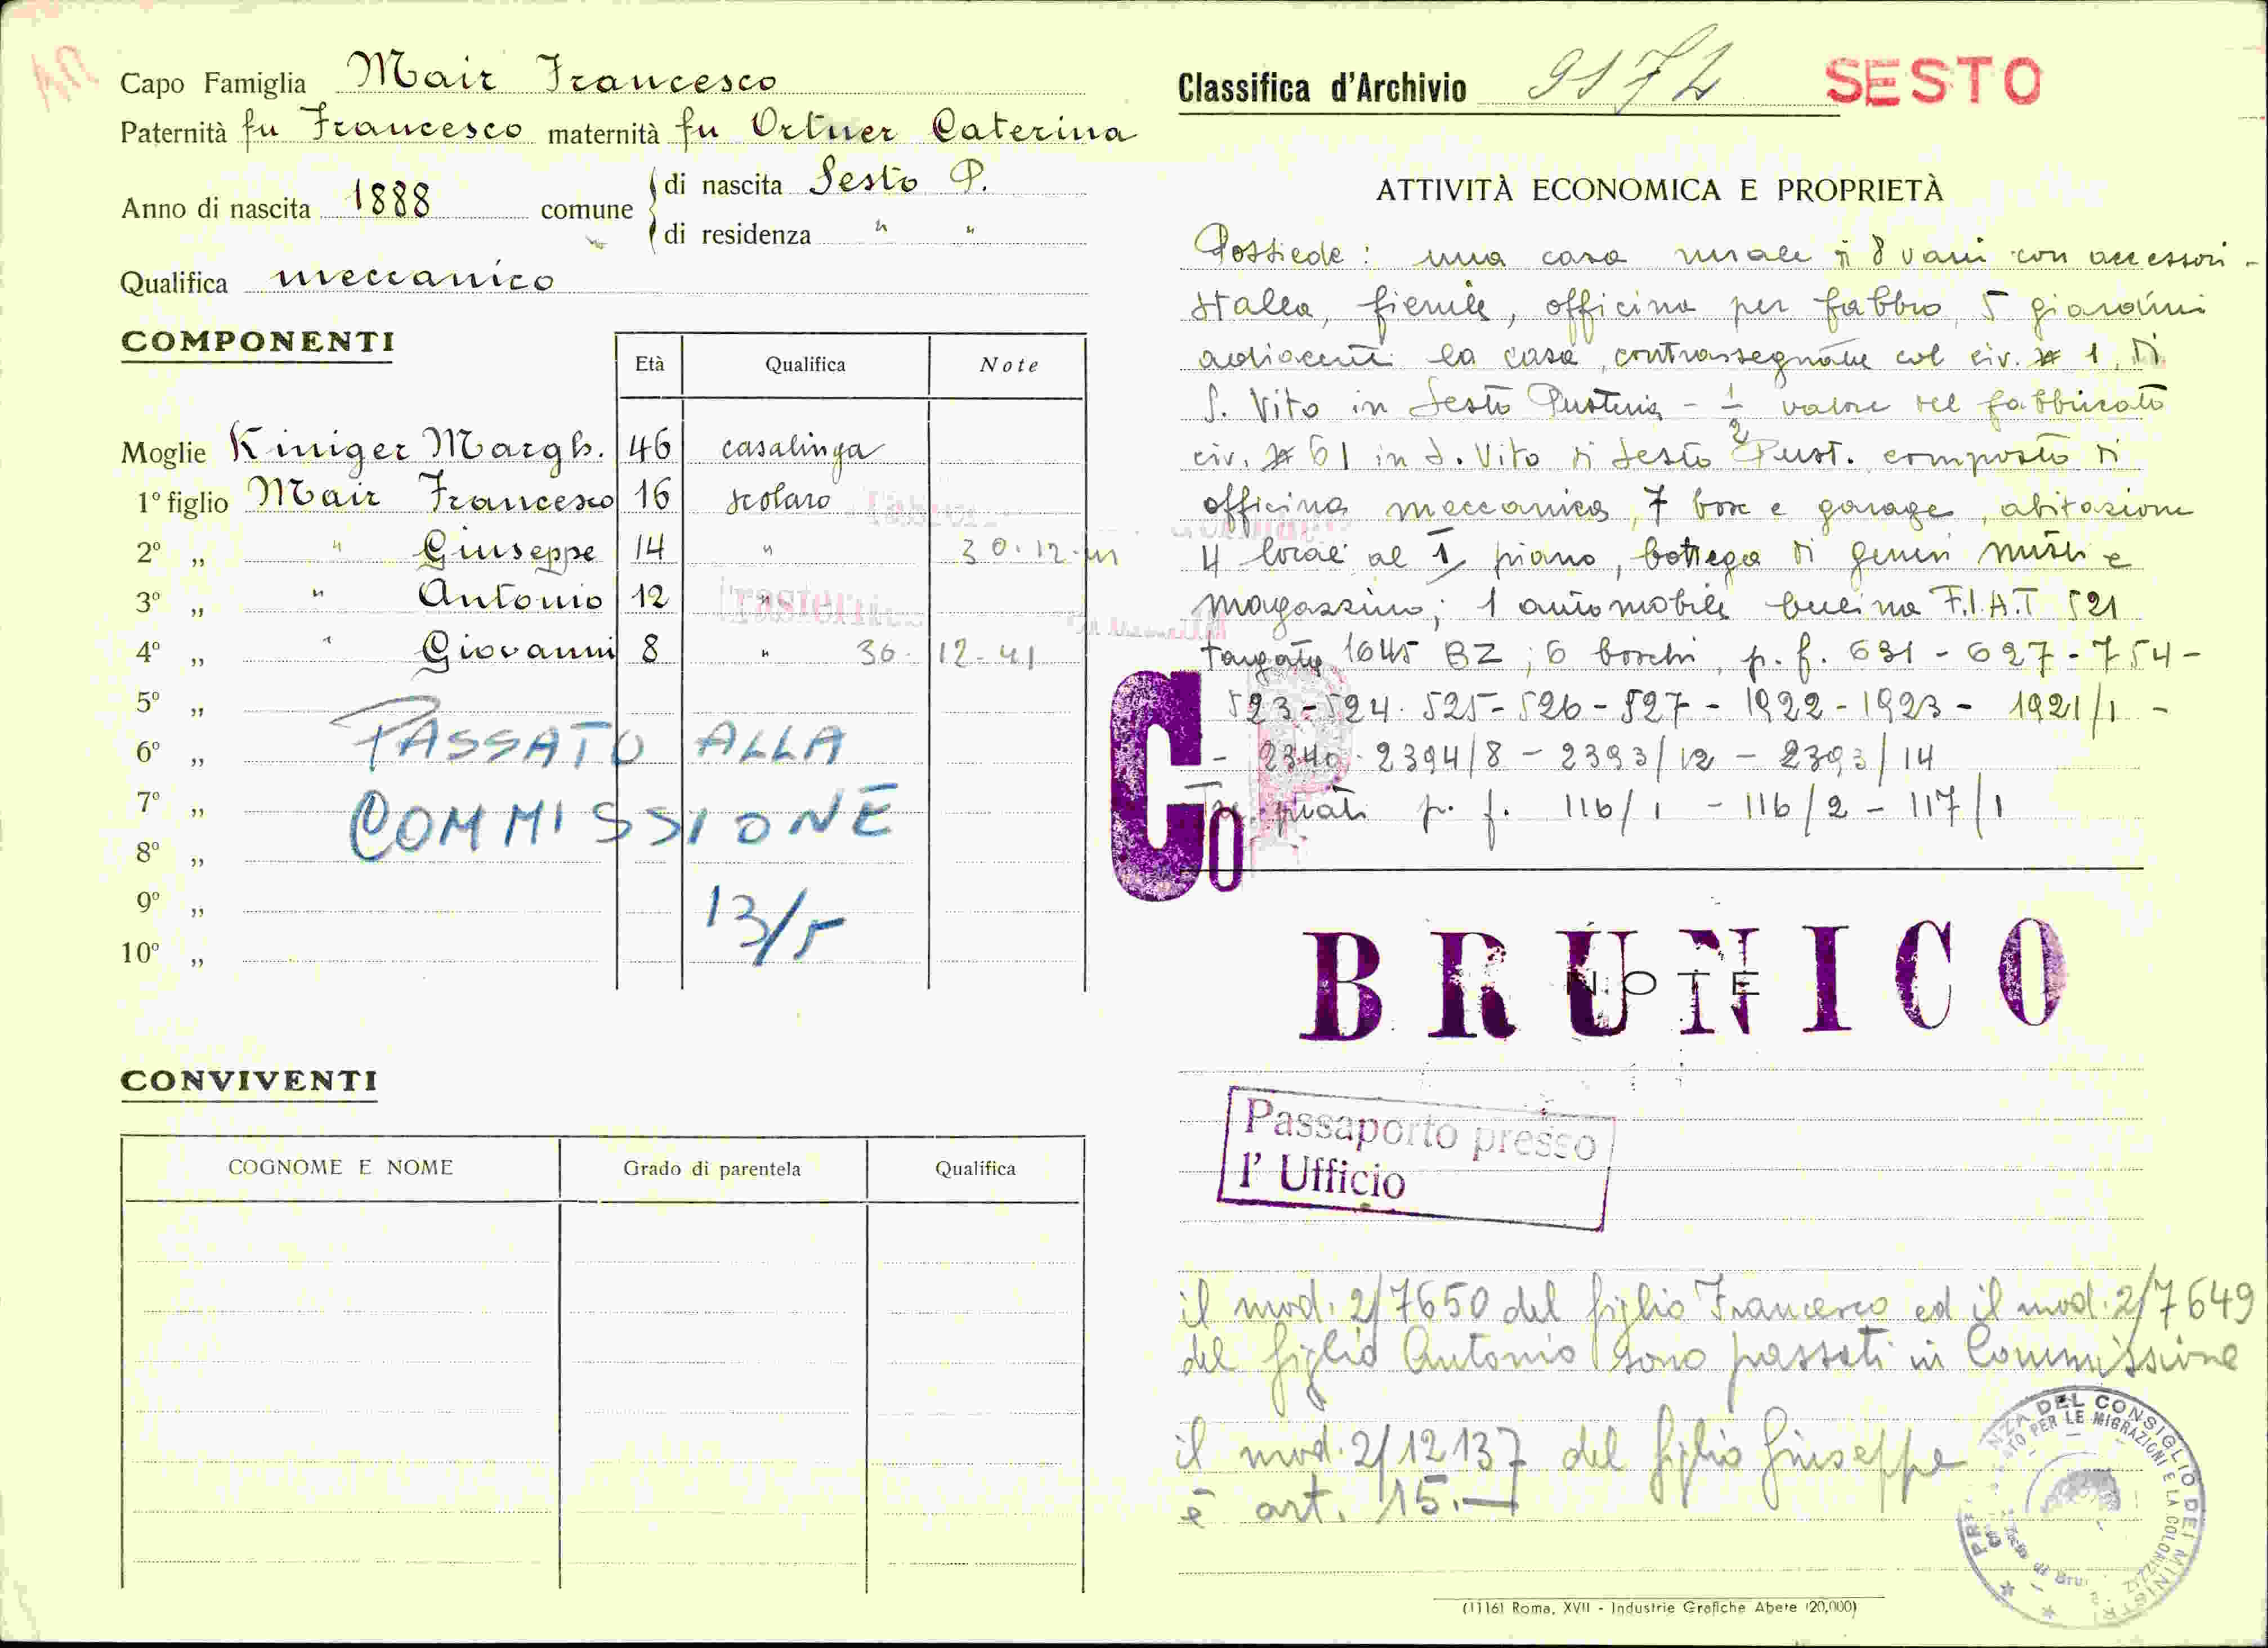 Capo Famiglia Mair Francesco
Paternità fu Francesco maternità fu Ortner Caterina
Anno di nascita 1888 comune
di nascita Sesto P.
di residenza " "
Qualifica meccanico
COMPONENTI
Età Qualifica Note
Moglie Kiniger Margh. 46 casalinga
1° figlio Mair Francesco 16 scolaro
2° „ " Giuseppe 14 " 30.12.41
3° „ " Antonio 12 "
4° „ " Giovanni 8 " 30. 12-41
5° „
6° „
7° „
8° „
9° „
10° „
PASSATO ALLA
COMMISSIONE
13/5
CONVIVENTI
COGNOME E NOME Grado di parentela Qualifica
Classifica d'Archivio 9172 SESTO
ATTIVITÀ ECONOMICA E PROPRIETÀ
Possiede: una casa rurale di 8 vani con accessori -
stalla, fienile, officina per fabbro, 5 giardini
adiacenti la casa, contrassegnate col civ. N 1, di
S. Vito in Sesto Pusteria - 1/2 valore del fabbricato
civ. N 61 in S. Vito di Sesto Pust. composto di
officina meccanica, 7 box e garage, abitazione
4 locali al I piano, bottega di generi misti e
magazzino; 1 automobile F.I.A.T 521
targata 1645 BZ; 6 boschi, p. f. 631 - 627 - 754 -
523 - 524 - 525 - 526 - 527 - 1922 - 1923 - 1921/1 -
- 2340 - 2394/8 - 2393/12 - 2393/14
Tre prati p. f. 116/1 - 116/2 - 117/1
Co P
BRUNICO
NOTE
Passaporto presso
l' Ufficio
il mod. 2/7650 del figlio Francesco ed il mod. 2/7649
del figlio Antonio sono passati in Commissione
il mod. 2/12137 del figlio Giuseppe
è art. 15.-
DEL CONSIGLIO DEI MINISTRI
PER LE MIGRAZIONI E LA COLONIZZAZ
(1116) Roma, XVII - Industrie Grafiche Abete (20,000)